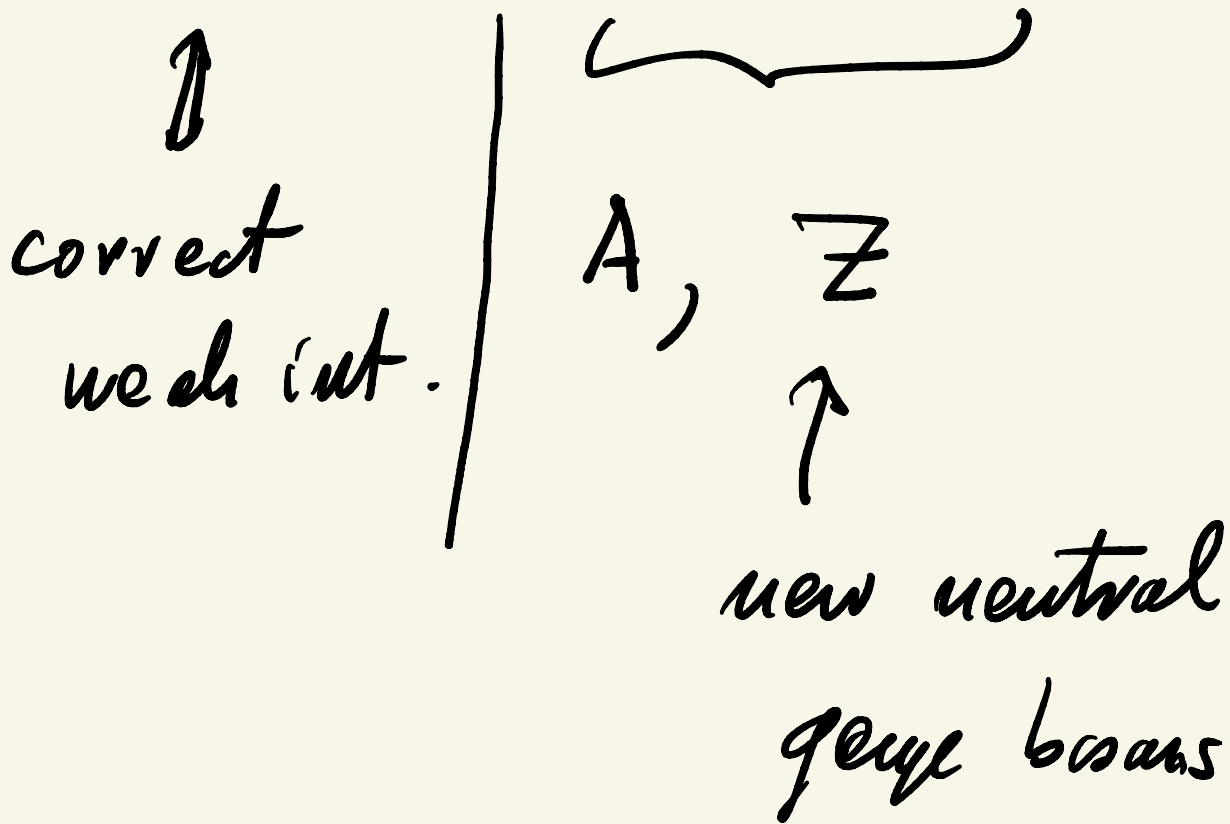 correct
weak int.
A, Z
new neutral
gauge bosons